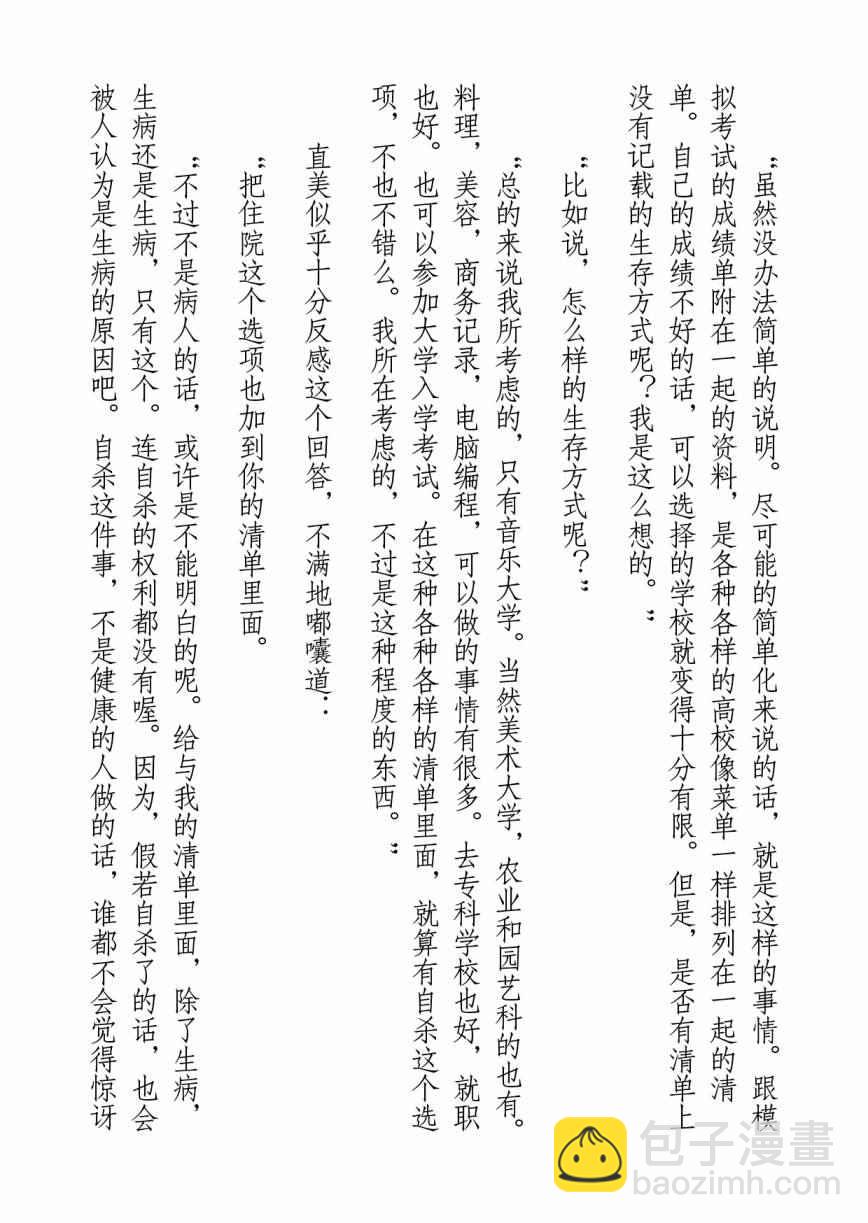 “虽然没办法简单的说明。尽可能的简单化来说的话，就是这样的事情。跟模
拟考试的成绩单附在一起的资料，是各种各样的高校像菜单一样排列在一起的清
单。自己的成绩不好的话，可以选择的学校就变得十分有限。但是，是否有清单上
没有记载的生存方式呢？我是这么想的。”
“比如说，怎么样的生存方式呢？”
“总的来说我所考虑的，只有音乐大学。当然美术大学，农业和园艺科的也有。
料理，美容，商务记录，电脑编程，可以做的事情有很多。去专科学校也好，就职
也好。也可以参加大学入学考试。在这种各种各样的清单里面，就算有自杀这个选
项，不也不错么。我所在考虑的，不过是这种程度的东西。”
直美似乎十分反感这个回答，不满地嘟囔道：
“把住院这个选项也加到你的清单里面。
“不过不是病人的话，或许是不能明白的呢。给与我的清单里面，除了生病，
生病还是生病，只有这个。连自杀的权利都没有喔。因为，假若自杀了的话，也会
被人认为是生病的原因吧。自杀这件事，不是健康的人做的话，谁都不会觉得惊讶
包子漫畫
baozimh.com